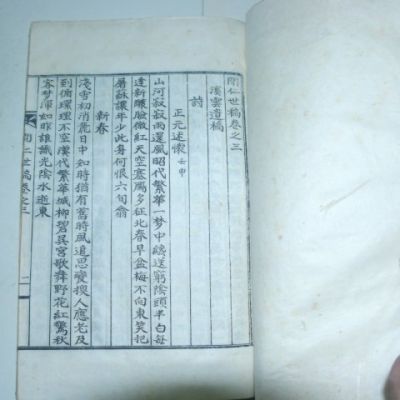 仁世稿卷之三
溪雲遺稿
詩
正元述懷 壬申
山河寂寂雨風昭代繁華一梦中臘送窮陰頭半白每
逢新曦臉微紅天空塞鴈多征北春早盆梅不向東笑把
屠蘇讓年少此身何恨六旬翁
新春
淺雪初消麗日中知時猶有舊時風追思變換人應老及
到循環理不空漢代繁華城柳碧吳宮歌舞野花紅驚秋
客梦渾如昨誰識光陰水逝東
仁世稿卷之三